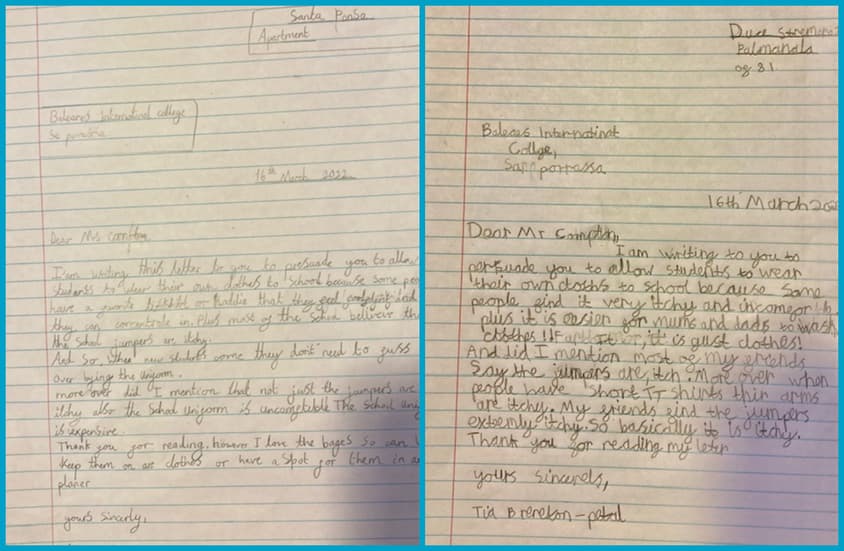 Santa Ponsa
Apartment
Baleares International college
Sa porrassa
16th March 2022
Dear Mrs Compton
I am writing this letter for you to persuade you to allow
students to wear their own clothes to school because some
have a favourite or that they feel and
they can concentrate in. Plus most of the School
the school jumpers are itchy.
And so when new students come they don't need to fuss
over bying the unigorm.
more over did I mention that not just the jumpers are
itchy also the school unigorm is uncomgtable The School
is expensive.
Thank you for reading, however I love the bages so can
keep them on our clothes or have a spot for them in
planer
yours sincerly,
Palmanala
og 31
Baleares Internatinat
Collge,
Sa porrassa
16th March
Dear Mr Compton,
I am writing to you to
persuade you to allow students to wear
their own cloths to school because some
people find it very itchy and
plus it is easier for mums and dads to wash
clothes !! it is gust clothes!
And did I mention most of my friends
Say the jumpers are itch. More over when
people have short T shirts thir arms
are itchy. My friends find the jumpers
extremly itchy. So basically it is itchy.
Thank you for reading my leter
yours sincerels,
Tia Brereton-